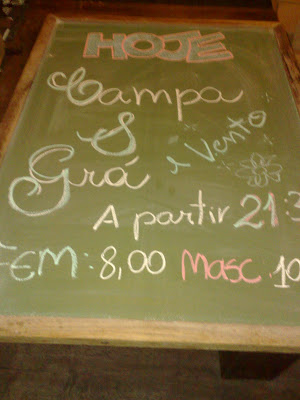 HOJE
Campa
S
Grá é Vento
A partir 21:3
FEM: 8,00 Masc 10